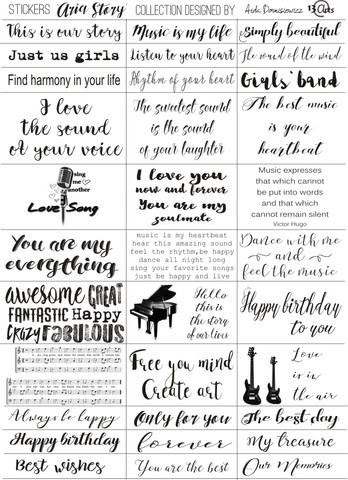 STICKERS Aria Story COLLECTION DESIGNED BY 13@rts
This is our story
Music is my life
Simply beautiful
Just us girls
Listen to your heart
The sound of the wind
Find harmony in your life
Rhythm of your heart
Girls' band
I love
the sound
of your voice
The sweetest sound
is the sound
of your laughter
The best music
is your
heartbeat
sing
me
another
Love Song
I love you
now and forever
You are my
soulmate
Music expresses
that which cannot
be put into words
and that which
cannot remain silent
Victor Hugo
You are my
everything
music is my heartbeat
hear this amazing sound
feel the rhythm, be happy
dance all night long
sing your favorite songs
just be happy and live
Dance with me
and
feel the music
awesome GREAT
FANTASTIC Happy
CRAZY FABULOUS
Hello
this is
the story
of our lives
Happy birthday
to you
Free you mind
Create art
Love
is in
the air
Always be happy
Only for you
The best day
Happy birthday
forever
My treasure
Best wishes
You are the best
Our Memories